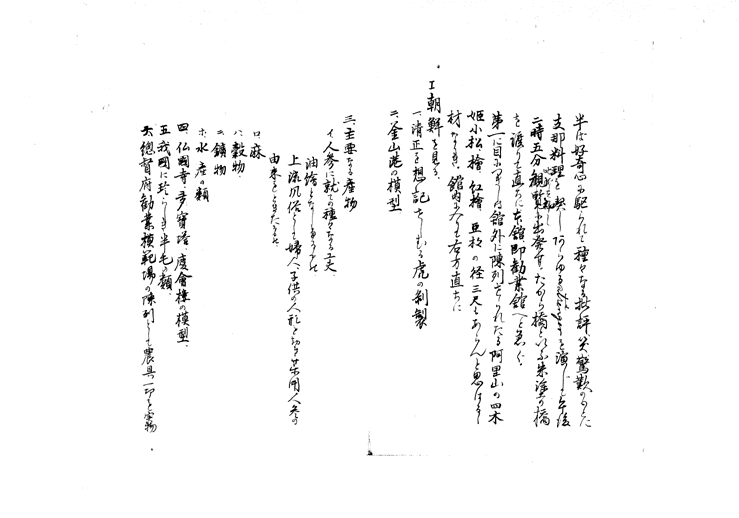 半ば好奇心に駆られて種々なる批評、又驚歎のうた
支那料理を喫し を演じ午後
二時五分観覧に出発す、たから橋といふ朱塗の橋
を渡りて直ちに本館、即勧業館へと急ぐ。
第一に目につくは館外に陳列せられたる阿里山の四木
姫小松、檜、紅檜、亜杉の径三尺もあらんと思はるゝ
材なりき、館内に入れば右方直ちに
I 朝鮮を見る、
一、清正を想ひ記せしむる虎の剥製
二、釜山港の模型
三、主要なる産物
イ、人参に就ての種々なる工夫、
油絵となしあるもの
上流風俗として婦人、子供の人形と
由来をときたるもの
ロ、麻
ハ、穀物、
ニ、鑛物
ホ、水産の類
四、仏國寺、多寶塔、慶會樓の模型、
五、我國に珍らしき羊毛の類、
六、總督府勧業模範場の陳列として農具一切と実物